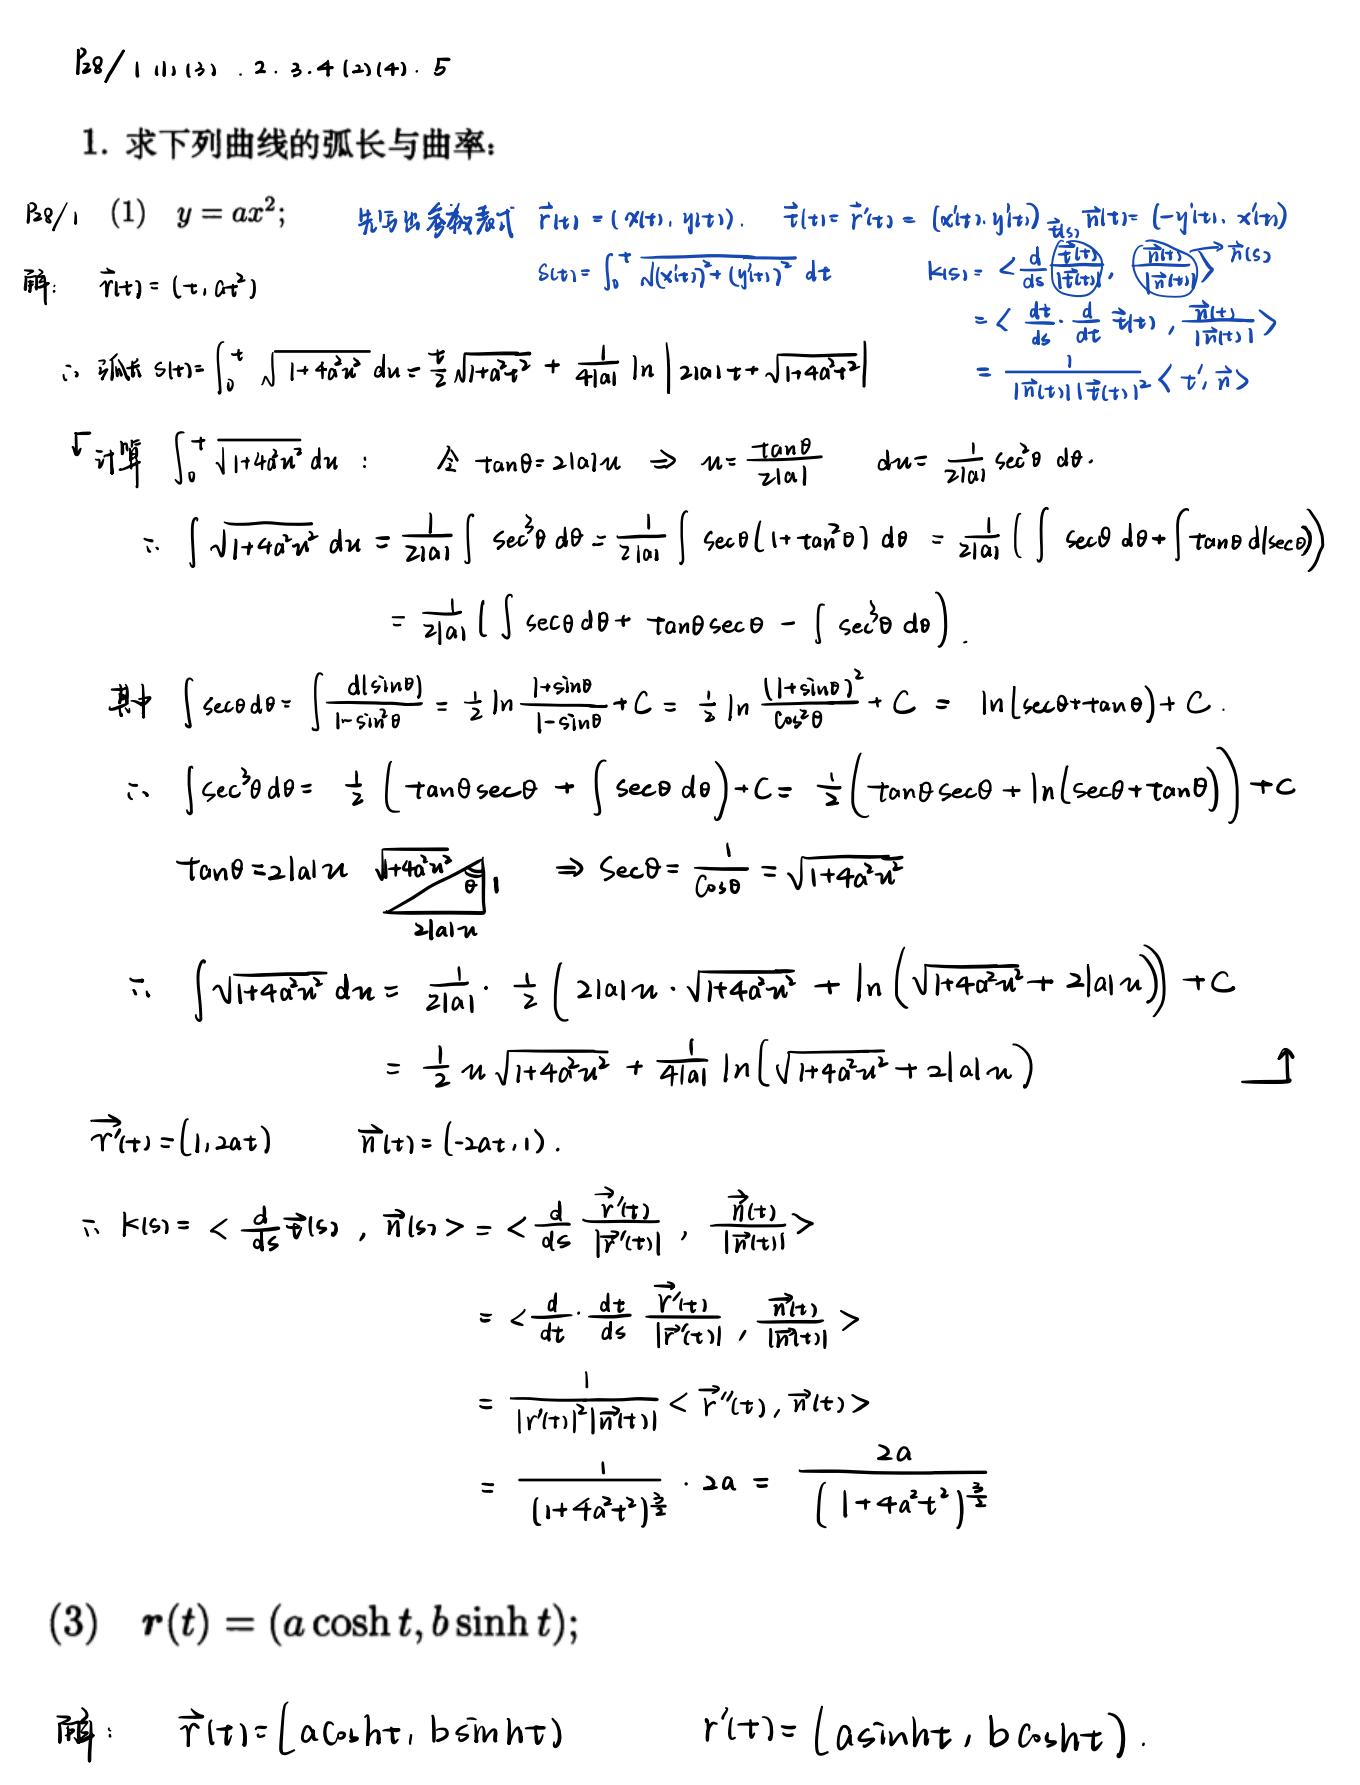 P28/ 1 (1) (3) . 2 . 3 . 4 (2) (4) . 5
1. 求下列曲线的弧长与曲率:
P28/1 (1) y = ax²;
先写出参数表式 r⃗(t) = (x(t), y(t)). t⃗(t) = r⃗'(t) = (x'(t), y'(t)) n⃗(t) = (-y'(t), x'(t))
S(t) = ∫₀ᵗ √((x'(t))² + (y'(t))²) dt
k(s) = < d/ds t⃗(t)/|t⃗(t)|, n⃗(t)/|n⃗(t)| > t⃗(s) → n⃗(s)
= < dt/ds · d/dt t⃗(t), n⃗(t)/|n⃗(t)| >
= 1/(|n⃗(t)||t⃗(t)|²) < t', n⃗ >
解: r⃗(t) = (t, at²)
∴ 弧长 S(t) = ∫₀ᵗ √(1+4a²u²) du = t/2 √(1+a²t²) + 1/(4|a|) ln | 2|a|t + √(1+4a²t²) |
计算 ∫₀ᵗ √(1+4a²u²) du : 令 tanθ = 2|a|u ⇒ u = tanθ/(2|a|) du = 1/(2|a|) sec²θ dθ.
∴ ∫ √(1+4a²u²) du = 1/(2|a|) ∫ sec³θ dθ = 1/(2|a|) ∫ secθ(1+tan²θ) dθ = 1/(2|a|) ( ∫ secθ dθ + ∫ tanθ d(secθ) )
= 1/(2|a|) ( ∫ secθ dθ + tanθ secθ - ∫ sec³θ dθ ) .
其中 ∫ secθ dθ = ∫ d(sinθ)/(1-sin²θ) = 1/2 ln (1+sinθ)/(1-sinθ) + C = 1/2 ln (1+sinθ)²/cos²θ + C = ln(secθ+tanθ) + C .
∴ ∫ sec³θ dθ = 1/2 ( tanθ secθ + ∫ secθ dθ ) + C = 1/2 ( tanθ secθ + ln(secθ+tanθ) ) + C
tanθ = 2|a|u √(1+4a²u²) θ 1 2|a|u ⇒ secθ = 1/cosθ = √(1+4a²u²)
∴ ∫ √(1+4a²u²) du = 1/(2|a|) · 1/2 ( 2|a|u · √(1+4a²u²) + ln ( √(1+4a²u²) + 2|a|u ) ) + C
= 1/2 u √(1+4a²u²) + 1/(4|a|) ln ( √(1+4a²u²) + 2|a|u )
r⃗'(t) = (1, 2at) n⃗(t) = (-2at, 1) .
∴ k(s) = < d/ds t⃗(s), n⃗(s) > = < d/ds r⃗'(t)/|r⃗'(t)|, n⃗(t)/|n⃗(t)| >
= < d/dt · dt/ds r⃗'(t)/|r⃗'(t)|, n⃗(t)/|n⃗(t)| >
= 1/(|r'(t)|²|n⃗(t)|) < r⃗''(t), n⃗(t) >
= 1/(1+4a²t²)^(3/2) · 2a = 2a/(1+4a²t²)^(3/2)
(3) r(t) = (a cosh t, b sinh t);
解: r⃗(t) = (a cosht, b sinht) r'(t) = (a sinht, b cosht) .